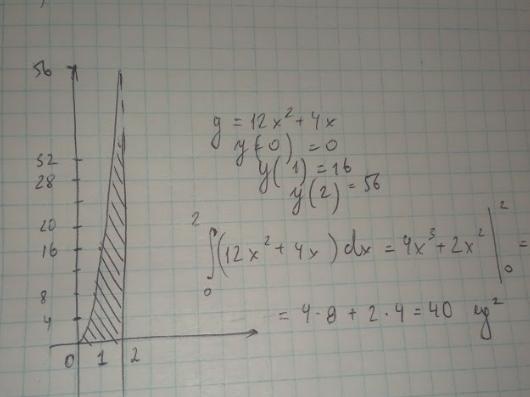 56
52
28
20
16
8
4
0 1 2
y = 12x² + 4x
y(0) = 0
y(1) = 16
y(2) = 56
2
∫(12x² + 4x) dx = 4x³ + 2x² |²₀ =
0
= 4·8 + 2·4 = 40